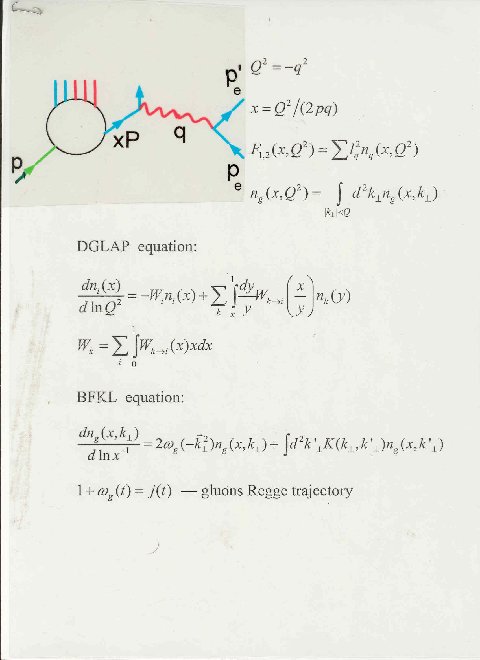 p
xP
q
p'e
pe
Q² = −q²
x = Q²/(2pq)
F₁,₂(x,Q²) = ∑ l²_q n_q(x,Q²)
n_g(x,Q²) = ∫_{|k⊥|<Q} d²k⊥ n_g(x,k⊥)
DGLAP equation:
dn_i(x)/d ln Q² = −W_i n_i(x) + ∑_k ∫_x^1 dy/y W_{k→i}(x/y) n_k(y)
W_x = ∑_i ∫_0 W_{k→i}(x)xdx
BFKL equation:
dn_g(x,k⊥)/d ln x⁻¹ = 2ω_g(−k⃗⊥²)n_g(x,k⊥) + ∫d²k'⊥K(k⊥,k'⊥)n_g(x,k'⊥)
1 + ω_g(t) = j(t) — gluons Regge trajectory